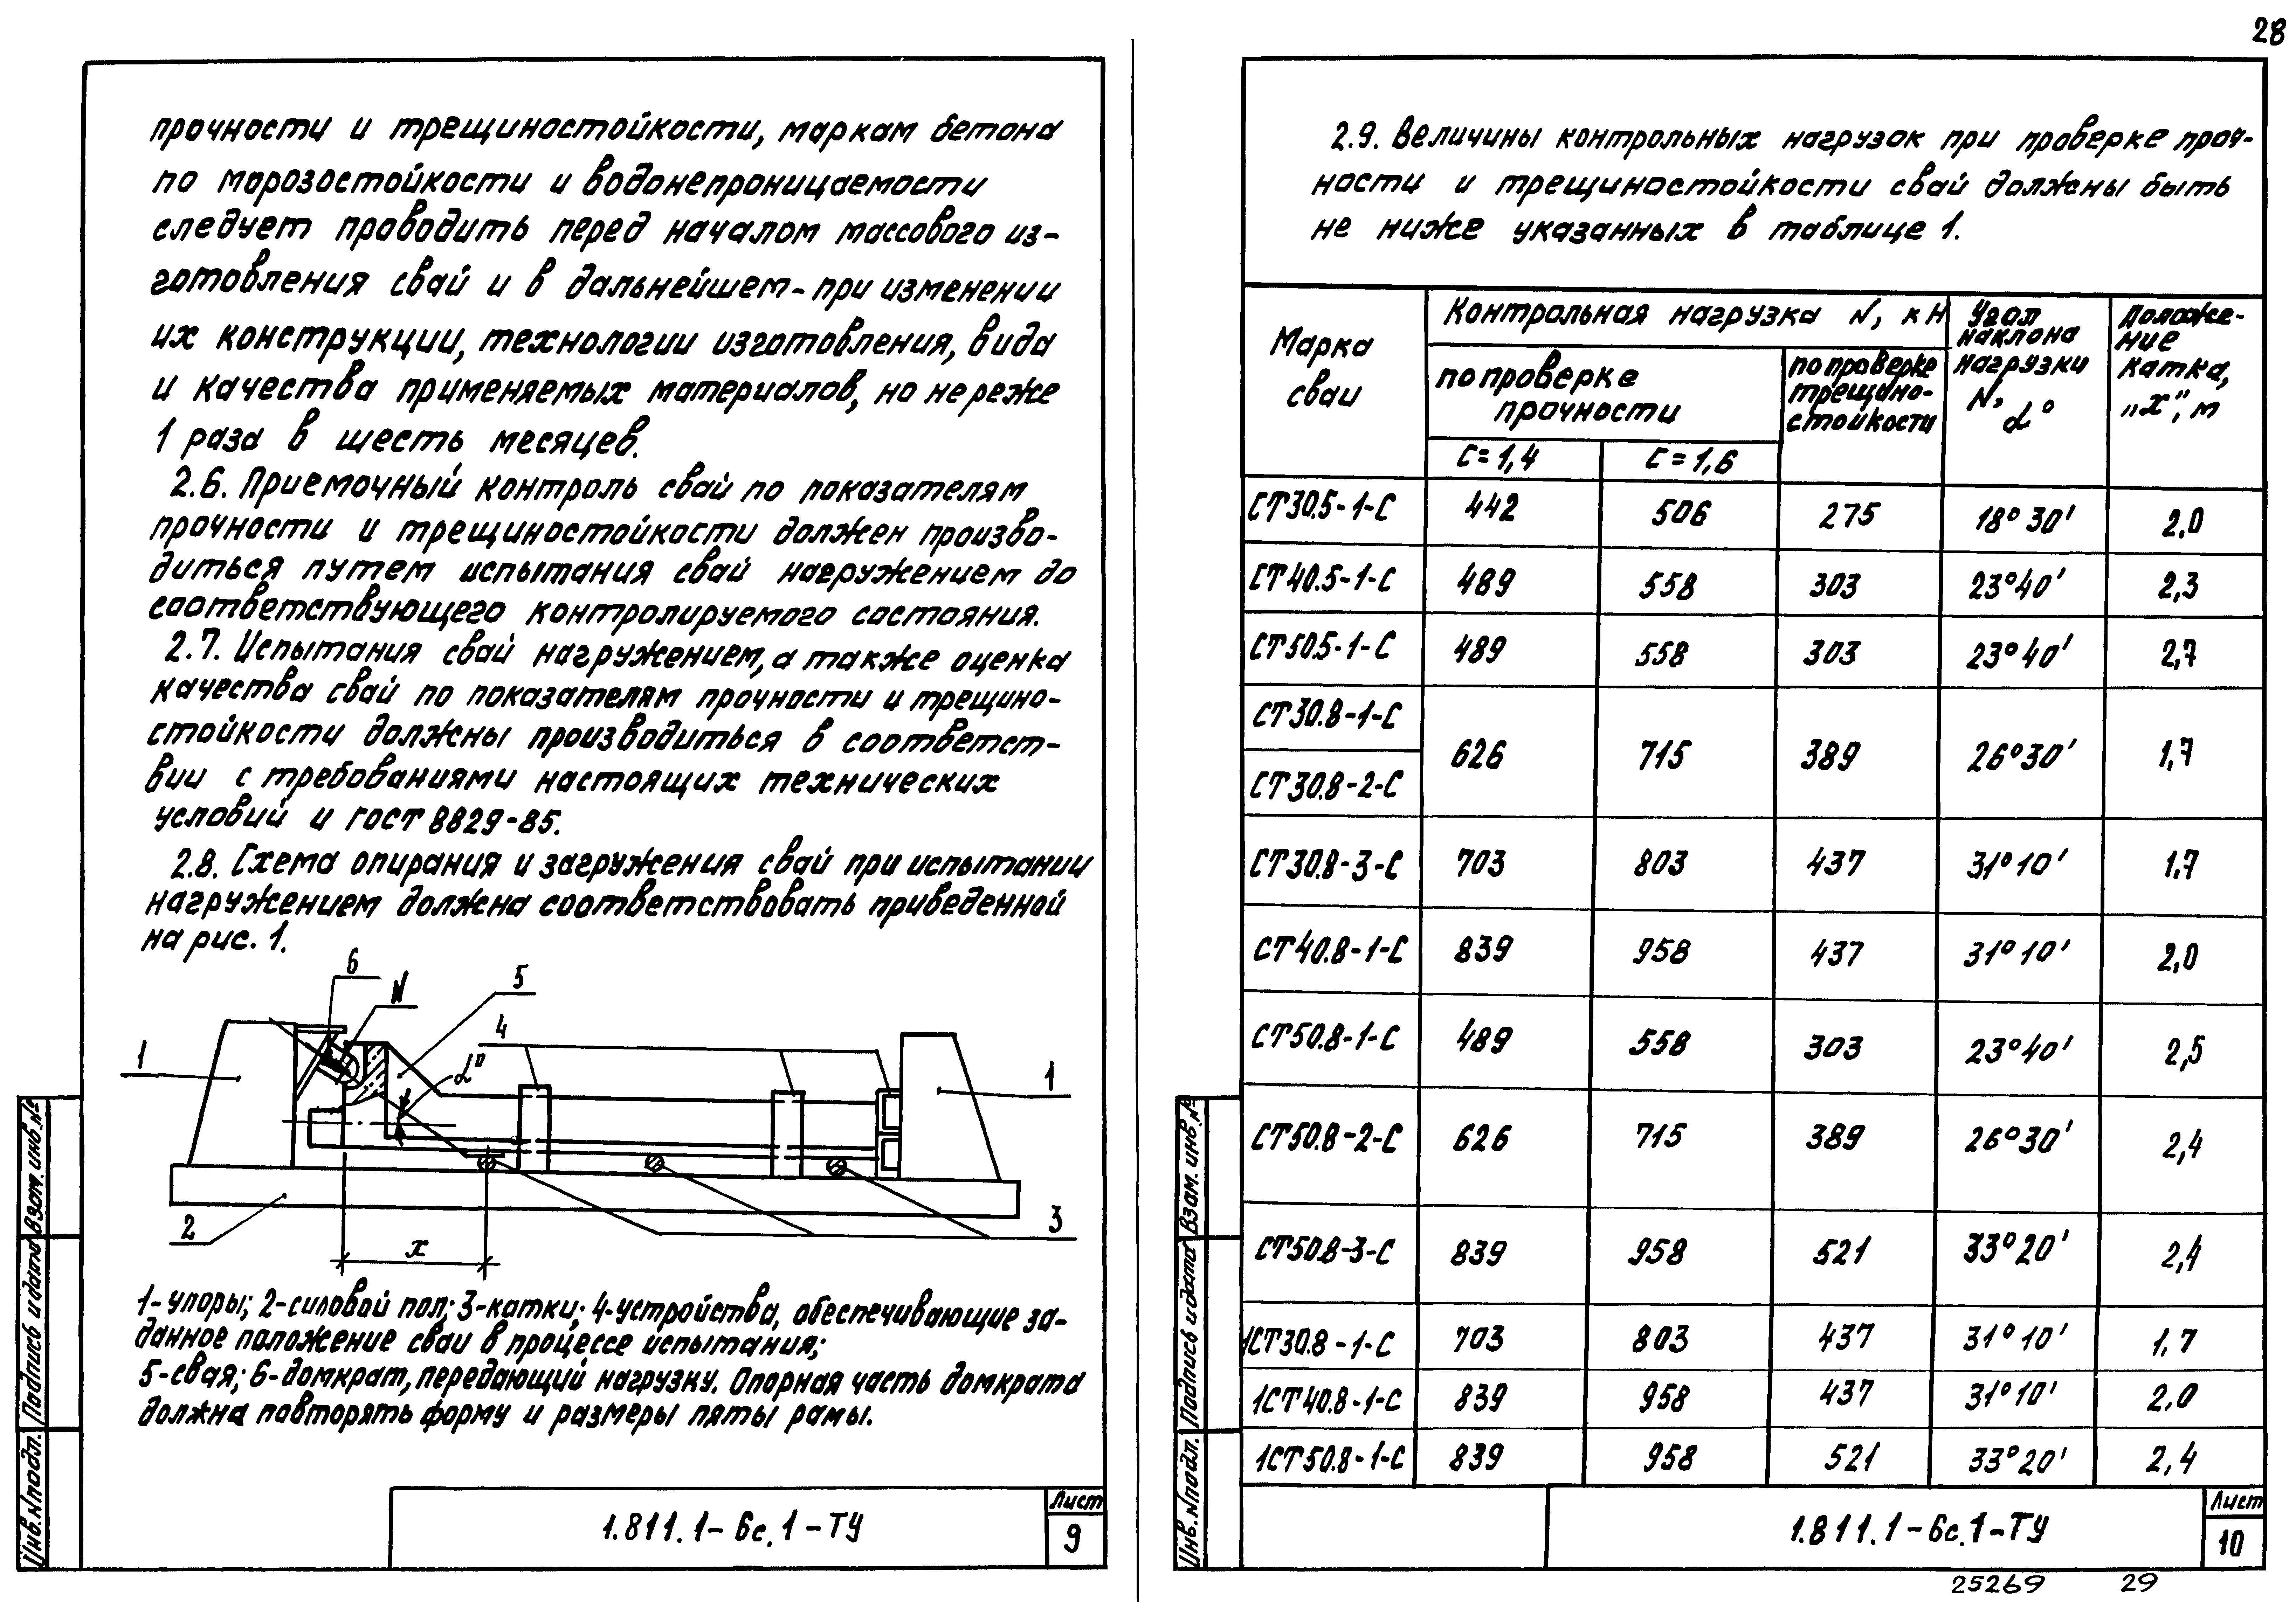 28
прочности и трещиностойкости, маркам бетона
по морозостойкости и водонепроницаемости
следует проводить перед началом массового из-
готовления свай и в дальнейшем - при изменении
их конструкции, технологии изготовления, вида
и качества применяемых материалов, но не реже
1 раза в шесть месяцев.
2.6. Приемочный контроль свай по показателям
прочности и трещиностойкости должен произво-
диться путем испытания свай нагружением до
соответствующего контролируемого состояния.
2.7. Испытания свай нагружением, а также оценка
качества свай по показателям прочности и трещино-
стойкости должны производиться в соответст-
вии с требованиями настоящих технических
условий и ГОСТ 8829-85.
2.8. Схема опирания и загружения свай при испытании
нагружением должна соответствовать приведенной
на рис. 1.
6
N
5
4
1
α°
1
2
x
3
1-упоры; 2-силовой пол; 3-катки; 4-устройства, обеспечивающие за-
данное положение сваи в процессе испытания;
5-свая; 6-домкрат, передающий нагрузку. Опорная часть домкрата
должна повторять форму и размеры пяты рамы.
Взам. инв. №
Подпись и дата
Инв. № подл.
1.811.1-6с.1-ТУ
Лист
9
2.9. Величины контрольных нагрузок при проверке проч-
ности и трещиностойкости свай должны быть
не ниже указанных в таблице 1.
Марка сваи
Контрольная нагрузка N, кН
по проверке прочности
C=1,4
C=1,6
по проверке трещино-стойкости
Угол наклона нагрузки N, α°
Положе-ние катка, „x”, м
СТ30.5-1-С 442 506 275 18°30' 2,0
СТ40.5-1-С 489 558 303 23°40' 2,3
СТ50.5-1-С 489 558 303 23°40' 2,7
СТ30.8-1-С
626 715 389 26°30' 1,7
СТ30.8-2-С
СТ30.8-3-С 703 803 437 31°10' 1.7
СТ40.8-1-С 839 958 437 31°10' 2,0
СТ50.8-1-С 489 558 303 23°40' 2,5
СТ50.8-2-С 626 715 389 26°30' 2,4
СТ50.8-3-С 839 958 521 33°20' 2,4
1СТ30.8-1-С 703 803 437 31°10' 1,7
1СТ40.8-1-С 839 958 437 31°10' 2,0
1СТ50.8-1-С 839 958 521 33°20' 2,4
Взам. инв. №
Подпись и дата
Инв. № подл.
1.811.1-6с.1-ТУ
Лист
10
25269 29